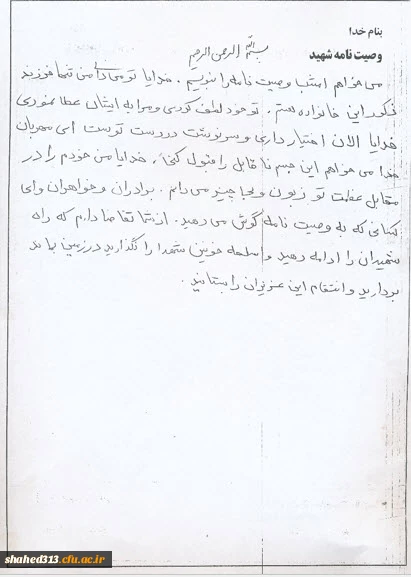 بنام خدا
وصیت نامه شهید
بسم الله الرحمن الرحیم
می خواهم امشب وصیت نامه را بنویسم . خدایا تو می دانی من تنها فرزند
ذکور این خانواده هستم . تو خود لطف کردی و مرا به ایشان عطا نمودی
خدایا الان اختیار داری و سرنوشت در دست توست ای مهربان
خدا می خواهم این جسم نا قابل را قبول کنی ، خدایا من خودم را در
مقابل عظمت تو زبون و بیجا چیز می دانم . برادران و خواهران وای
کسانی که به وصیت نامه گوش می دهید . از شما تقاضا دارم که راه
شهیدان را ادامه دهید و اسلحه خونین شهدا را نگذارید در زمین بماند
بردارید و انتقام این عزیزان را بستانید .
shahed313.cfu.ac.ir